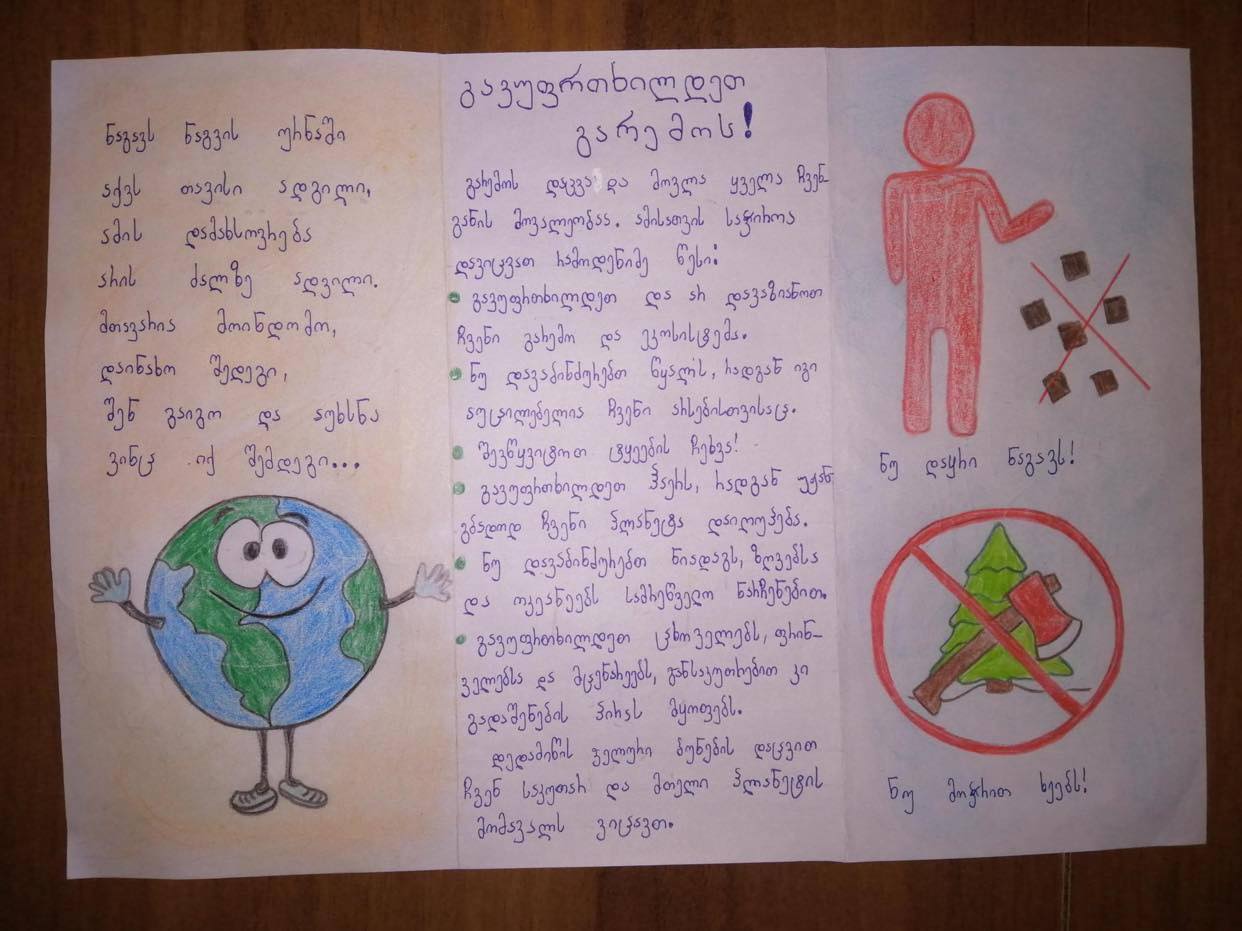 ნაგავს ნაგვის ურნაში
აქვს თავისი ადგილი,
ამის დამახსოვრება
არის ძალზე ადვილი.
მთავარია მოინდომო,
დაინახო შედეგი,
შენ გაიგო და აუხსნა
ვინც იქ შემდეგი...
გავუფრთხილდეთ
გარემოს!
გარემოს დაცვა და მოვლა ყველა ჩვენ-
განის მოვალეობაა. ამისათვის საჭიროა
დავიცვათ რამოდენიმე წესი:
• გავუფრთხილდეთ და არ დავაზიანოთ
ჩვენი გარემო და ეკოსისტემა.
• ნუ დავაბინძურებთ წყალს, რადგან იგი
აუცილებელია ჩვენი არსებისთვისაც.
• შევწყვიტოთ ტყეების ჩეხვა!
• გავუფრთხილდეთ ჰაერს, რადგან უჟან
გბადოდ ჩვენი პლანეტა დაილუპება.
• ნუ დავაბინძურებთ ნიადაგს, ზღვებსა
და ოკეანეებს სამრეწველო ნარჩენებით.
• გავუფრთხილდეთ ცხოველებს, ფრინ-
ველებსა და მცენარეებს, განსაკუთრებით კი
გადაშენების პირას მყოფებს.
დედამიწის ველური ბუნების დაცვით
ჩვენ საკუთარ და მთელი პლანეტის
მომავალს ვიცავთ.
ნუ დაყრი ნაგავს!
ნუ მოჭრით ხეებს!